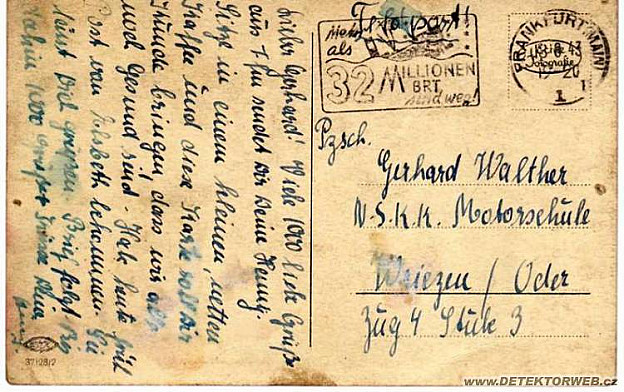 Feldpost!!
Mehr
als
32 MILLIONEN
BRT
sind weg!
FRANKFURT (MAIN)
Lieber Gerhard! Viele 1000 liebe Grüße
aus Ffm sendet Dir Deine Henny.
Sitze in einem kleinen, netten
Kaffee und diese Karte soll Dir
Kunde bringen, dass wir alle
wohl und Gesund sind. Hab heute früh
Post von bekommen. Sie
läßt Dich grüssen. Brief folgt
1000 Grüße
Pzsch.
Gerhard Walther
N.S.K.K. Motorschule
Wriezen / Oder
Zug 4 Stube 3
37128/2
www.DETEKTORWEB.cz